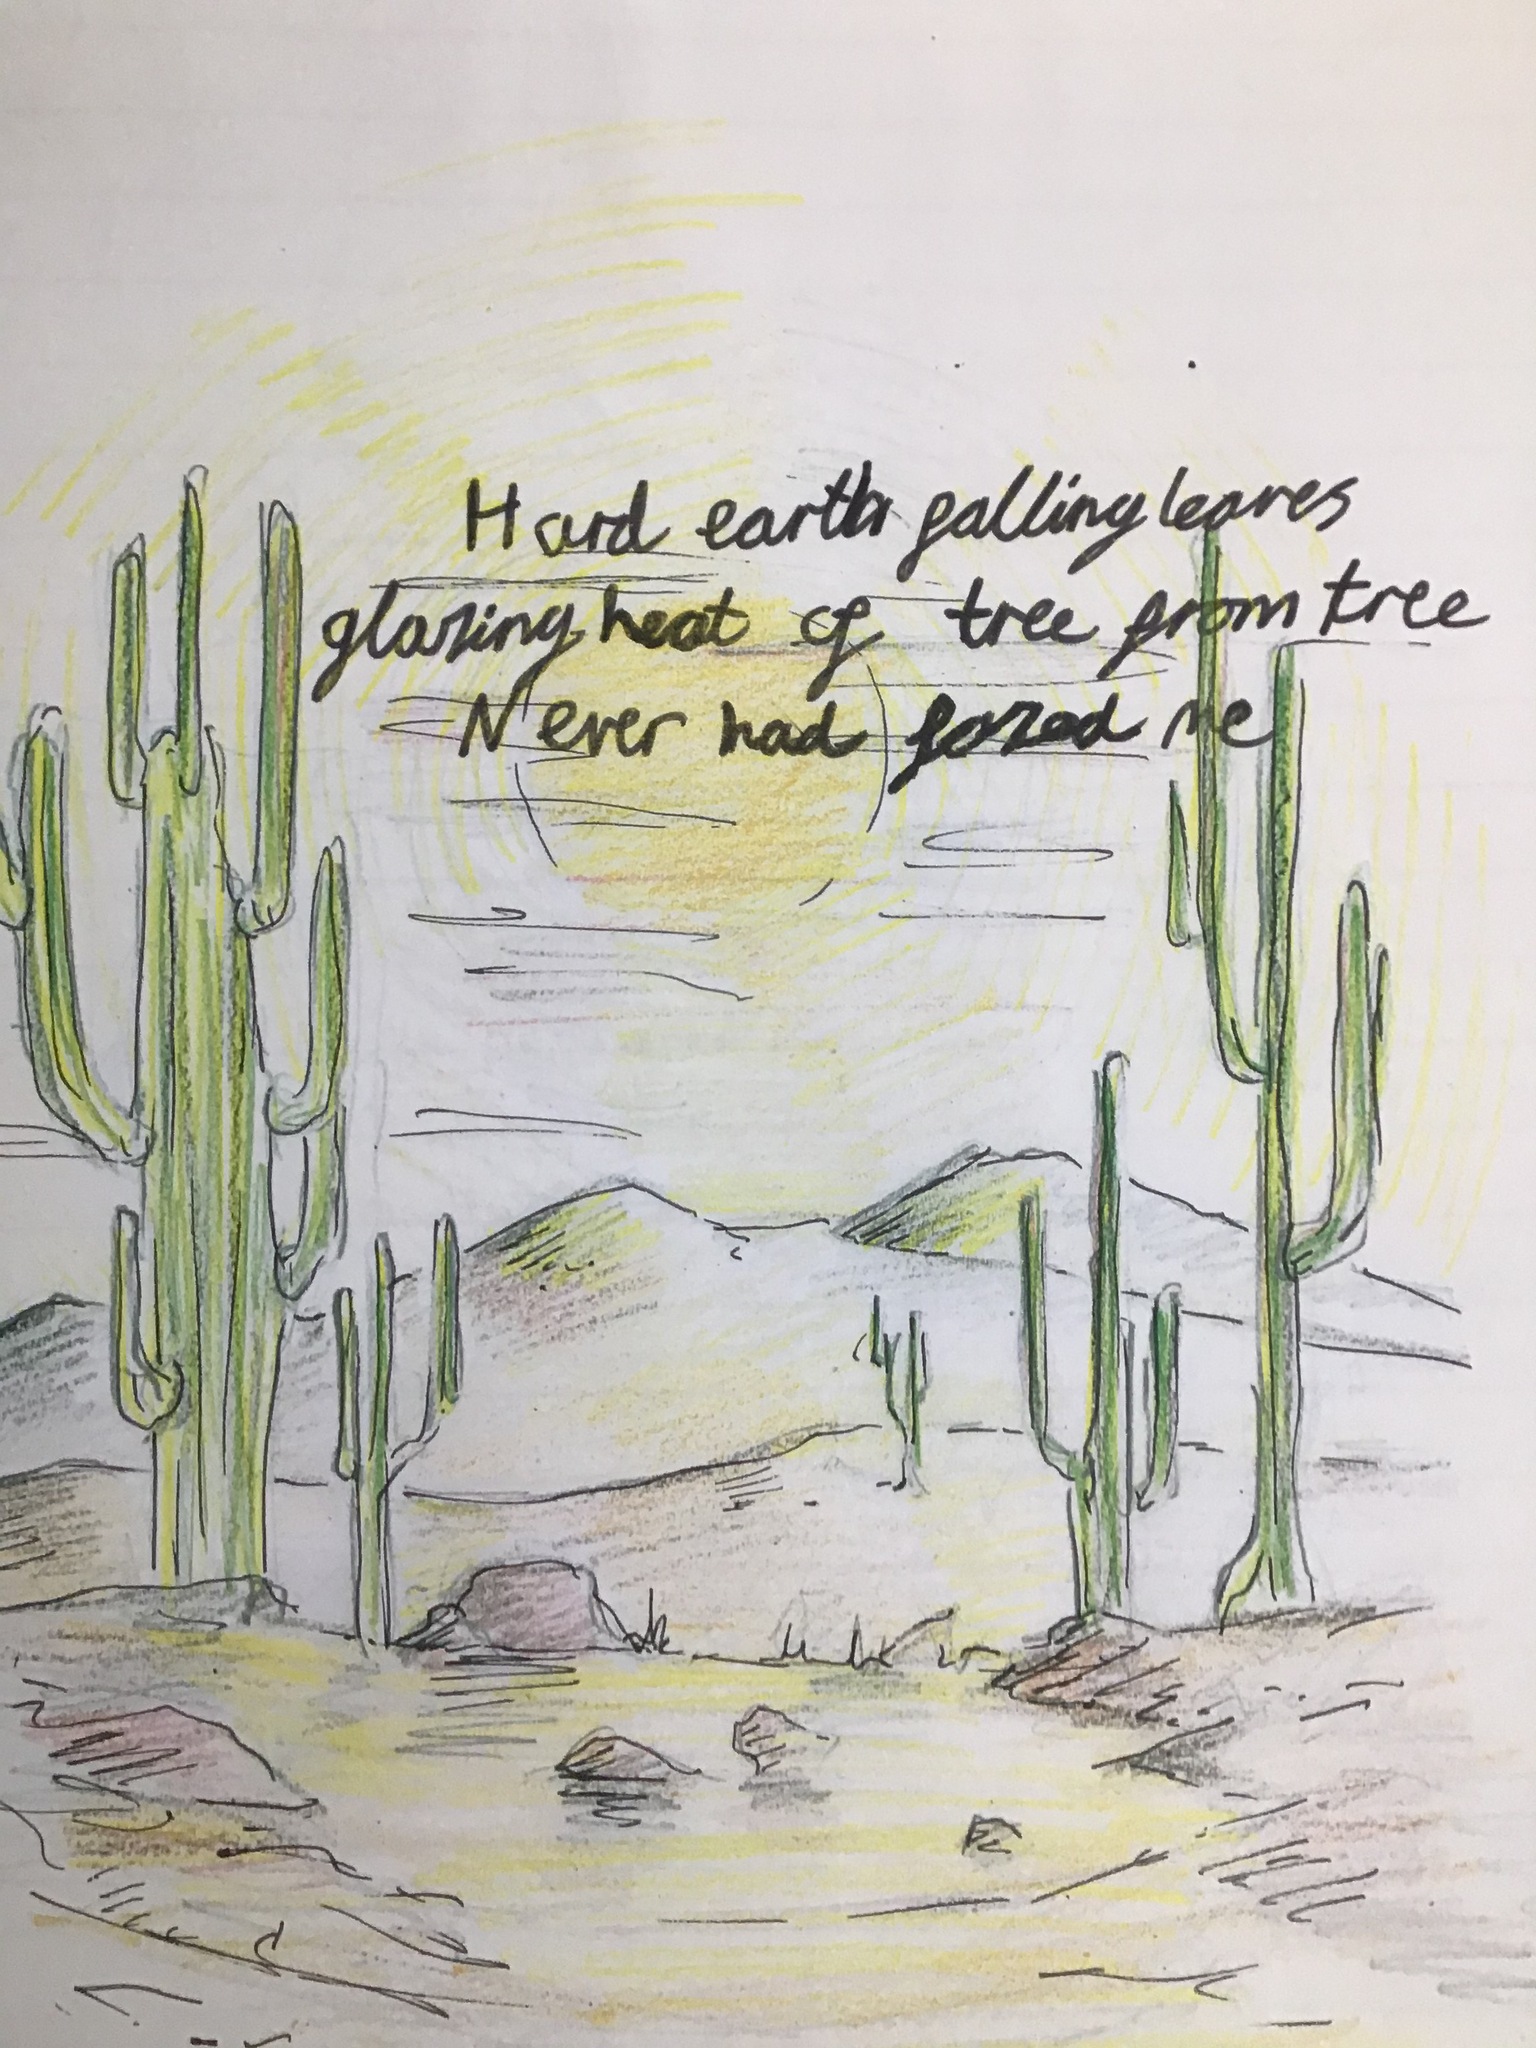 Hard earth falling leaves
glazing heat of tree from tree
Never had fazed me